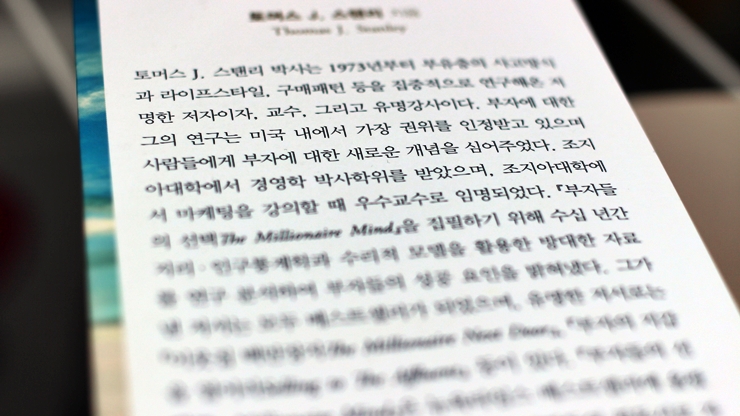 토머스 J. 스탠리 지음
Thomas J. Stanley
토머스 J. 스탠리 박사는 1973년부터 부유층의 사고방식
과 라이프스타일, 구매패턴 등을 집중적으로 연구해온 저
명한 저자이자, 교수, 그리고 유명강사이다. 부자에 대한
그의 연구는 미국 내에서 가장 권위를 인정받고 있으며
사람들에게 부자에 대한 새로운 개념을 심어주었다. 조지
아대학에서 경영학 박사학위를 받았으며, 조지아대학에
서 마케팅을 강의할 때 우수교수로 임명되었다. 『부자들
의 선택The Millionaire Mind』을 집필하기 위해 수십 년간
인구통계학과 수리적 모델을 활용한 방대한 자료
를 연구 분석하여 부자들의 성공 요인을 밝혀냈다. 그가
모두 베스트셀러가 되었으며, 유명한 저서로는
The Millionaire Next Door』, 『부자의 지갑
to The Affluent』 등이 있다. 『부자들의 선